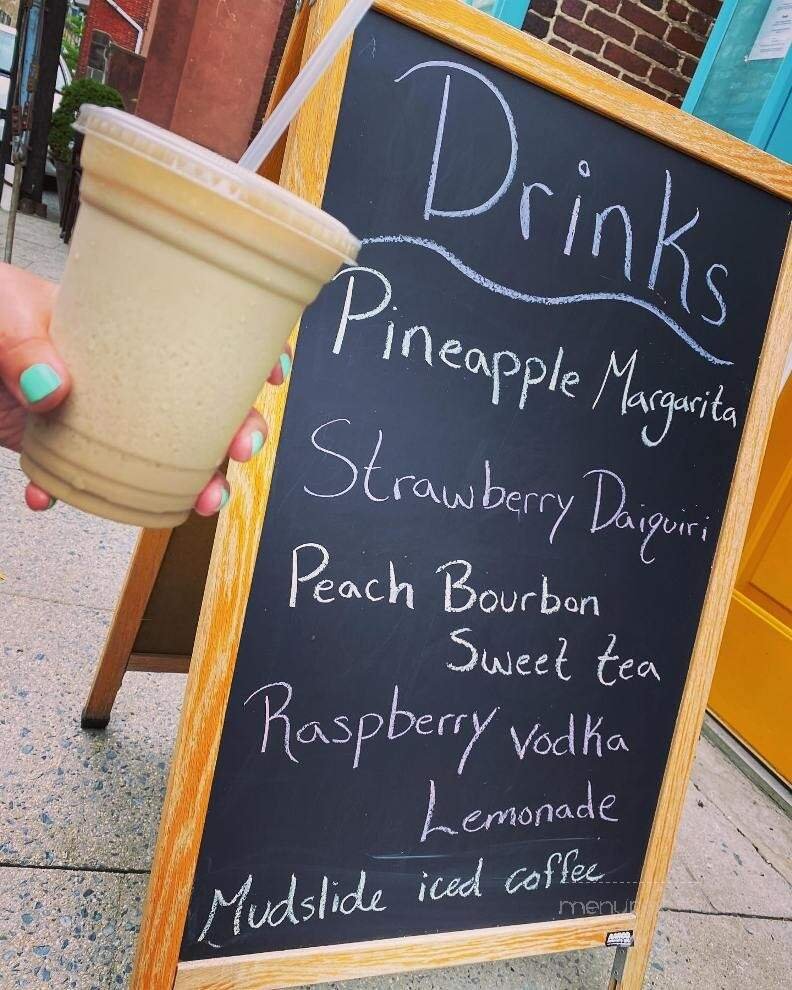 Drinks
Pineapple Margarita
Strawberry Daiquiri
Peach Bourbon
Sweet tea
Raspberry vodka
Lemonade
Mudslide iced coffee